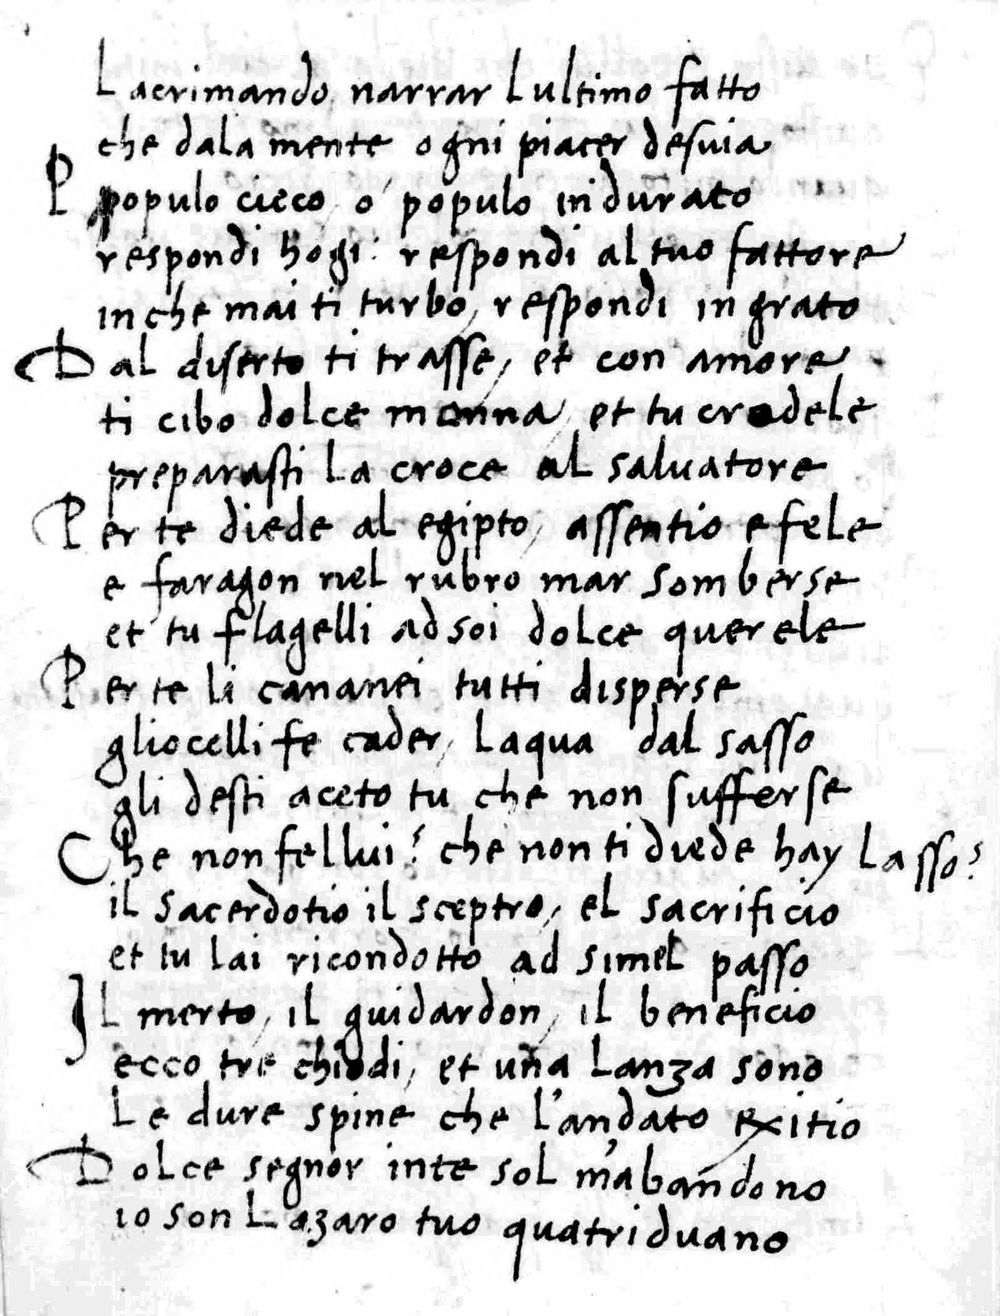 Lacrimando narrar Lultimo fatto
che dala mente ogni piacer desuia
P populo cieco o populo indurato
respondi hogi: respondi al tuo fattore
inche mai ti turbo, respondi ingrato
Dal diserto ti trasse, et con amore
ti cibo dolce manna, et tu crudele
preparasti La croce al saluatore
Per te diede al egipto, assentio e fele
e faragon nel rubro mar somberse
et tu flagelli ad soi dolce querele
Per te li cananei tutti disperse
gliocelli fe cader, Laqua dal sasso
gli desti aceto tu che non sufferse
Che non fellui? che non ti diede hay Lasso?
il sacerdotio il sceptro, el sacrificio
et tu lai ricondotto ad simel passo
IL merto, il guidardon, il beneficio
ecco tre chiodi, et una Lanza sono
Le dure spine che l'andato exitio
Dolce segnor inte sol m'abandono
io son Lazaro tuo quatriduano